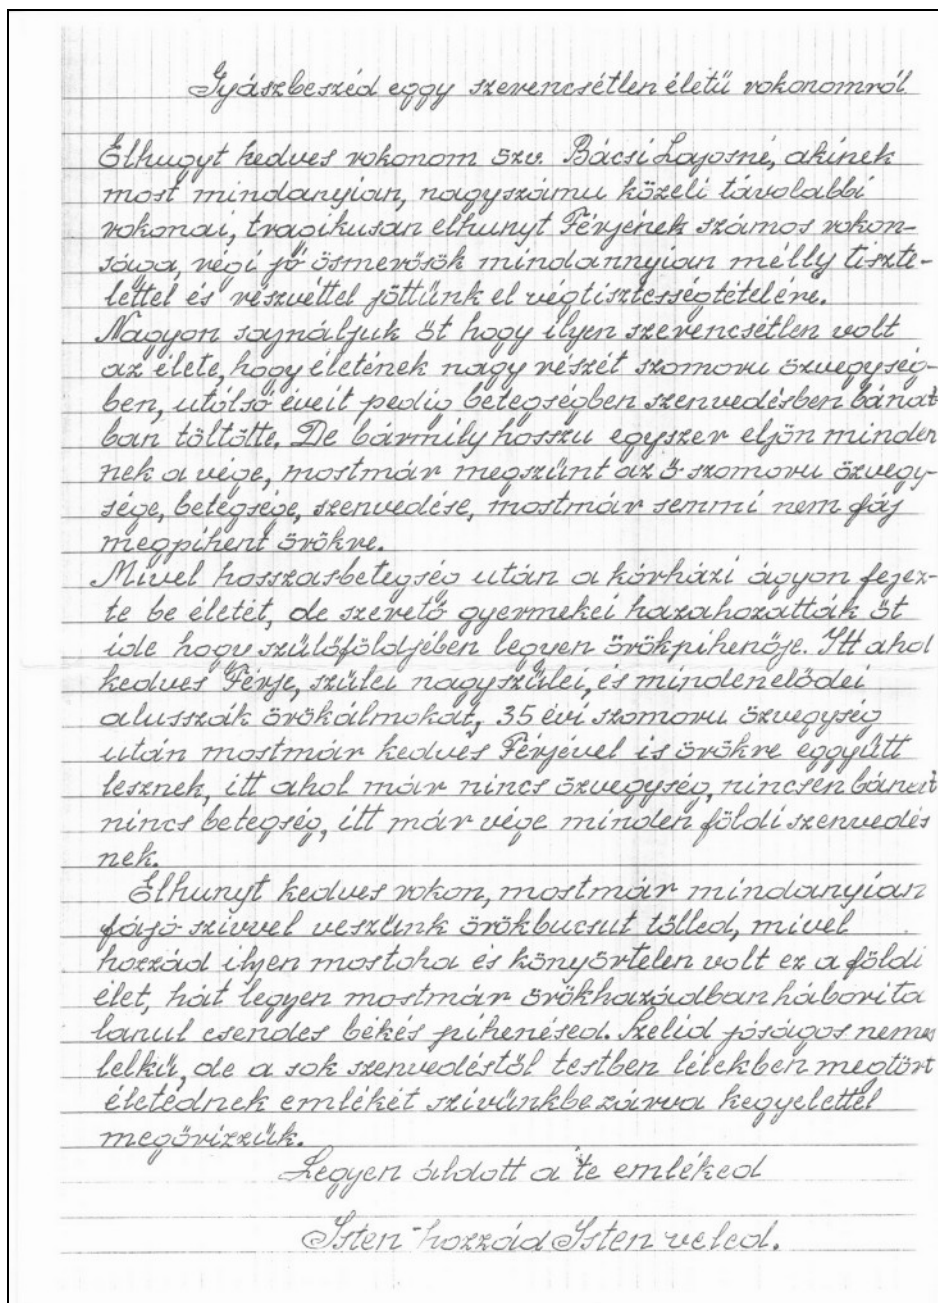 Gyászbeszéd eggy szerencsétlen életű rokonomról
Elhugyt kedves rokonom szv. Bácsi Lajosné, akinek
most mindanyian, nagyszámu közeli távolabbi
rokonai, tragikusan elhunyt Férjének számos rokon-
sága, régi jó ösmerősök mindannyian mélly tiszte-
lettel és részvéttel jöttünk el végtisztességtételére.
Nagyon sajnáljuk őt hogy ilyen szerencsétlen volt
az élete, hogy életének nagy részét szomoru özvegység-
ben, utólsó éveit pedig betegségben szenvedésben bánat
ban töltötte. De bármily hosszu egyszer eljön minden
nek a vége, mostmár megszünt az ő szomoru özvegy-
sége, betegsége, szenvedése, mostmár semmi nem fáj
megpihent örökre.
Mivel hosszasbetegség után a kórházi ágyon fejez-
te be életét, de szerető gyermekei hazahozatták őt
ide hogy szülőföldjében legyen örökpihenője. Itt ahol
kedves Férje, szülei nagyszülei, és mindenelődei
alusszák örökálmokat, 35 évi szomoru özvegység
után mostmár kedves Férjével is örökre eggyütt
lesznek, itt ahol már nincs özvegység, nincsen bánat
nincs betegség, itt már vége minden földi szenvedés
nek.
Elhunyt kedves rokon, mostmár mindanyian
fájó szivvel veszünk örökbucsut tölled, mivel
hozzád ilyen mostoha és könyörtelen volt ez a földi
élet, hát legyen mostmár örökhazádban háborita
lanul csendes békés pihenésed. Szelid jóságos nemes
lelkű, de a sok szenvedéstől testben lélekben megtört
életednek emlékét szivünkbe zárva kegyelettel
megőrizzük.
Legyen áldott a te emléked
Isten hozzád Isten veled.